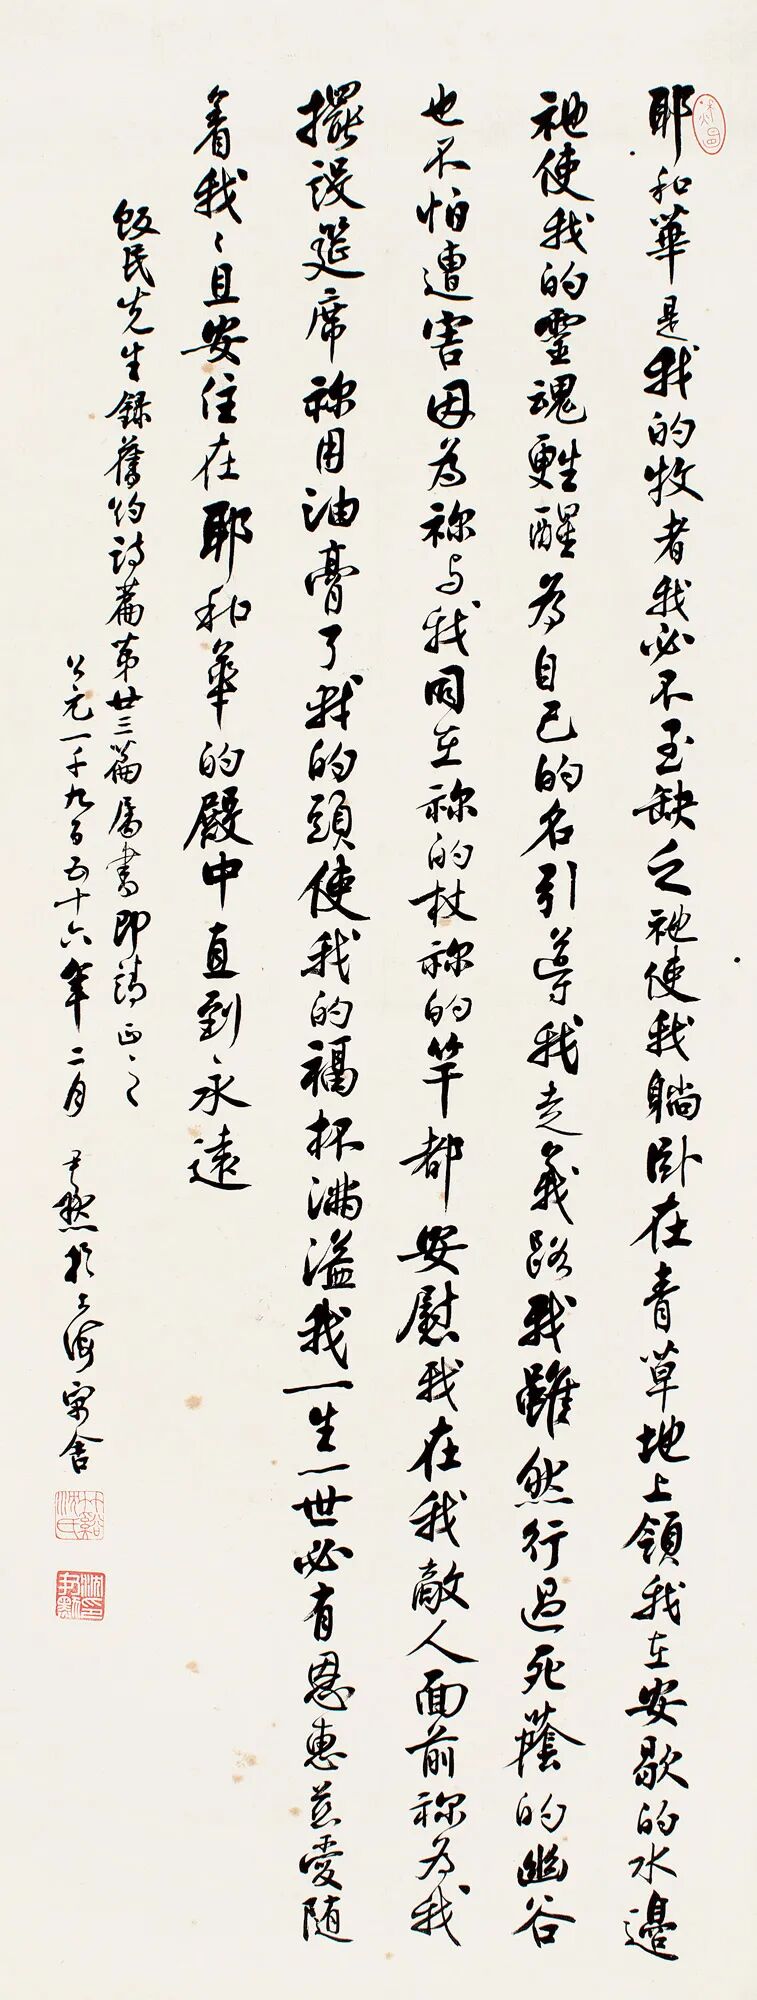 耶和華是我的牧者我必不至缺乏祂使我躺臥在青草地上領我在安歇的水邊
祂使我的靈魂甦醒為自己的名引導我走義路我雖然行過死蔭的幽谷
也不怕遭害因為祢与我同在祢的杖祢的竿都安慰我在我敵人面前祢為我
擺設筵席祢用油膏了我的頭使我的福杯滿溢我一生一世必有恩惠慈愛随
着我〻且安住在耶和華的殿中直到永遠
飯民先生錄舊約詩篇第廿三篇屬書即請正之
公元一千九百五十六年二月 尹默於上海寓舍
竹谿沈氏
沈尹默印